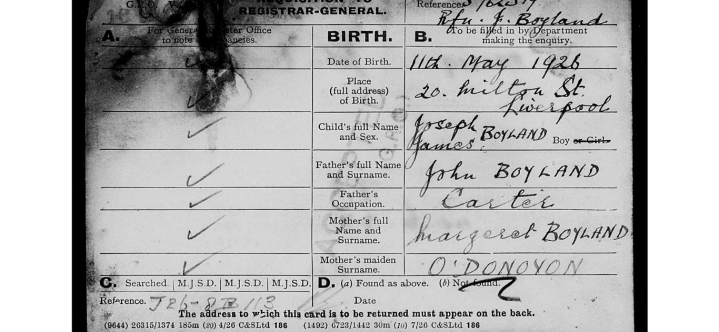 REGISTRAR-GENERAL.
Reference
Rfn. J. Boyland
A.
For General Register Office
to note discrepancies.
BIRTH.
B.
To be filled in by Department
making the enquiry.
Date of Birth.
11th. May 1926
Place
(full address)
of Birth.
20. Milton St.
Liverpool
Child's full Name
and Sex.
Joseph
James BOYLAND
Boy or Girl.
Father's full Name
and Surname.
John BOYLAND
Father's
Occupation.
Carter
Mother's full
Name and
Surname.
Margaret BOYLAND
Mother's maiden
Surname.
O'DONOVON
C. Searched. M.J.S.D. M.J.S.D. M.J.S.D.
D. (a) Found as above. (b) Not found.
Reference. J26-8B 113
Date
The address to which this card is to be returned must appear on the back.
(9644) 26315/1374 185m (20) 4/26 C&SLtd 186 (1492) 6723/1442 30m (10) 7/26 C&SLtd 186